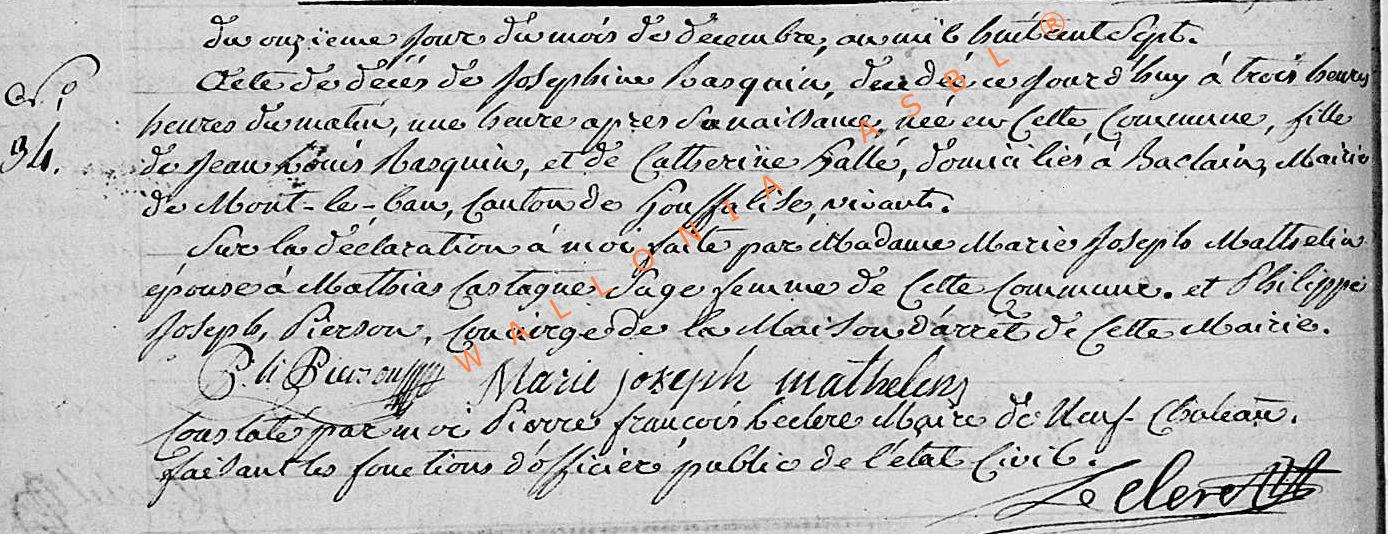 du onzieme jour du mois de decembre, an mil huit cent Sept.
N.o
34.
Acte de décés de Josephine Rasquin, decedée ce jourd'huy à trois heures
heures du matin, une heure apres Sa naissance, née en Cette Commune, fille
de Jean Louis Rasquin, et de Catherine Gallé, domiciliés à Baclain, Mairie
de Mont-le-ban, Canton de Houffalise, vivants.
Sur la déclaration à moi faite par Madame Marie Joseph Mathelin
épouse à Mathias Castagne Sage femme de Cette Commune. et Philippe
Joseph, Pierson, Concierge de la Maison d'arrêt de Cette Mairie.
Marie joseph mathelin
Constaté par moi Pierre françois Leclerc Maire de Neuf-Chateau.
faisant les fonctions d'officier public de l'état Civil.
Leclerc
WALLONIA ASBL ®